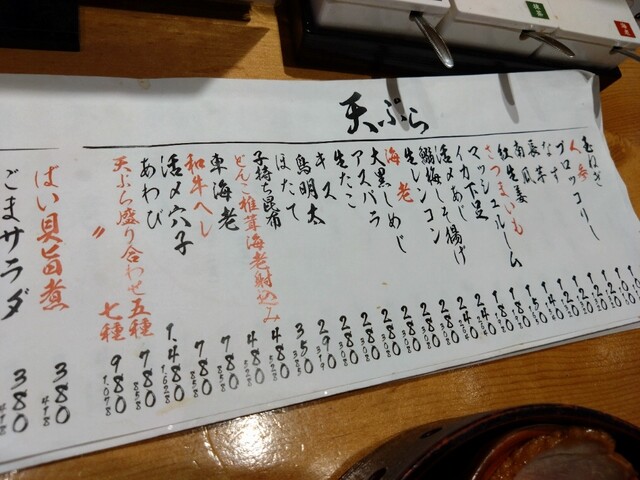 天ぷら
玉ねぎ
人参
ブロッコリー
なす
長芋
南瓜
紅生姜
さつまいも
マッシュルーム
イカ下足
活〆あじ
鰯梅しそ揚げ
生レンコン
海老
大黒しめじ
アスパラ 280 308
生たこ 280 308
キス 280 308
鳥明太 280 308
ほたて 290 319
子持ち昆布 350 385
どんこ椎茸海老射込み 480 528
車海老 480 528
和牛ヘレ 780 858
活〆穴子 780 858
あわび 1,480 1,628
天ぷら盛り合わせ五種 780 858
〃 七種 980 1,078
ばい貝旨煮 380 418
ごまサラダ 380 418